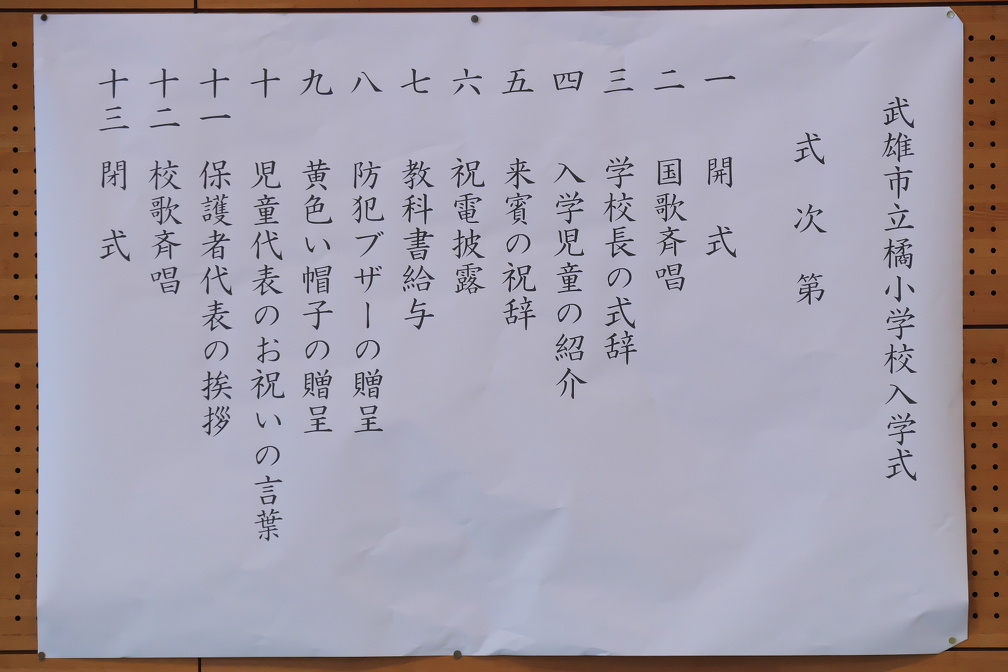 武雄市立橘小学校入学式
式次第
一 開式
二 国歌斉唱
三 学校長の式辞
四 入学児童の紹介
五 来賓の祝辞
六 祝電披露
七 教科書給与
八 防犯ブザーの贈呈
九 黄色い帽子の贈呈
十 児童代表のお祝いの言葉
十一 保護者代表の挨拶
十二 校歌斉唱
十三 閉式